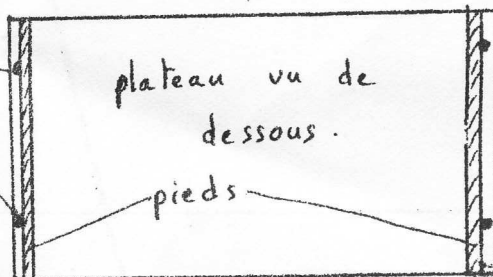 plateau vu de
dessous.
pieds